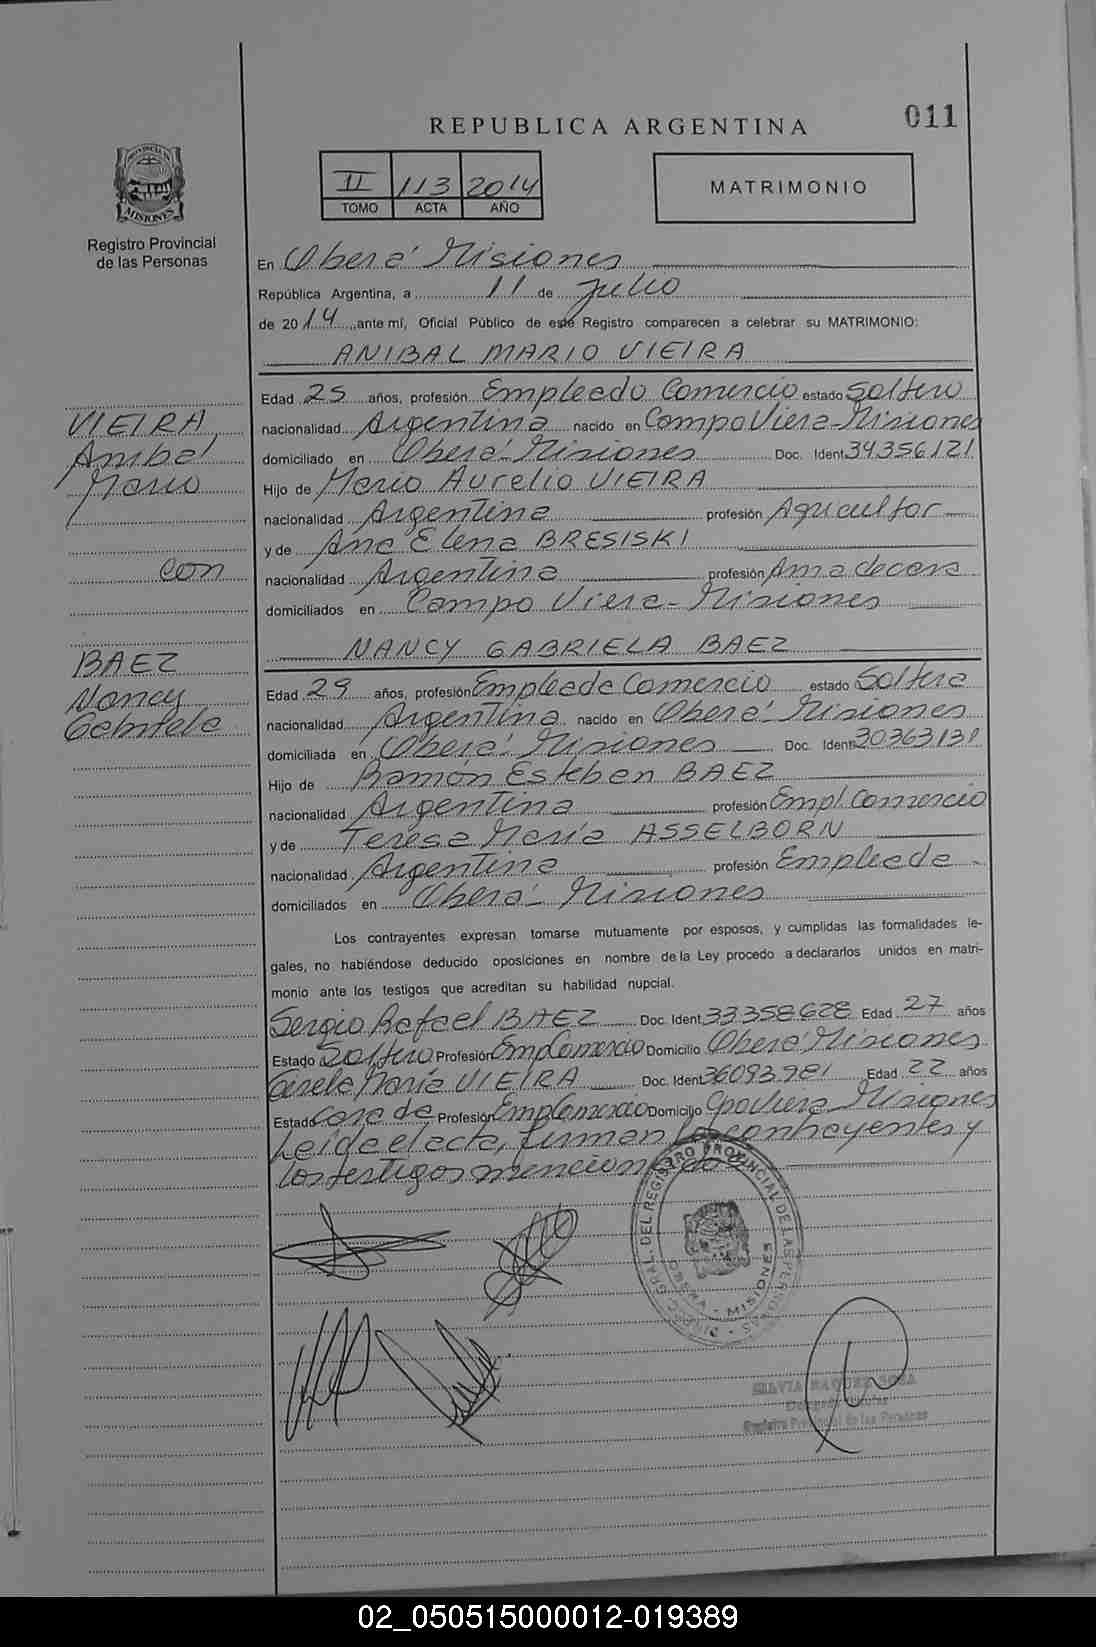 011
REPUBLICA ARGENTINA
II 113 2014
TOMO ACTA AÑO
MATRIMONIO
PROVINCIA DE MISIONES
Registro Provincial
de las Personas
En Oberá Misiones
República Argentina, a 11 de Julio
de 2014, ante mí, Oficial Público de este Registro comparecen a celebrar su MATRIMONIO:
ANIBAL MARIO VIEIRA
Edad 25 años, profesión Empleado Comercio estado Soltero
nacionalidad Argentina nacido en Campo Viera-Misiones
domiciliado en Oberá-Misiones Doc. Ident 34356121
Hijo de Mario Aurelio VIEIRA
nacionalidad Argentina profesión Agricultor
y de Ana Elena BRESISKI
nacionalidad Argentina profesión Ama de casa
domiciliados en Campo Viera-Misiones
NANCY GABRIELA BAEZ
Edad 29 años, profesión Empleada Comercio estado Soltera
nacionalidad Argentina nacido en Oberá-Misiones
domiciliada en Oberá-Misiones Doc. Ident 30363131
Hijo de Ramón Esteban BAEZ
nacionalidad Argentina profesión Empl. Comercio
y de Teresa María ASSELBORN
nacionalidad Argentina profesión Empleada
domiciliados en Oberá-Misiones
VIEIRA,
Anibal
Mario
con
BAEZ
Nancy
Gabriela
Los contrayentes expresan tomarse mutuamente por esposos, y cumplidas las formalidades le-
gales, no habiéndose deducido oposiciones en nombre de la Ley procedo a declararlos unidos en matri-
monio ante los testigos que acreditan su habilidad nupcial.
Sergio Rafael BAEZ Doc. Ident 33358628 Edad 27 años
Estado Soltero Profesión Emp Comercio Domicilio Oberá Misiones
María VIEIRA Doc. Ident 36093981 Edad 22 años
Estado casada Profesión Emp Comercio Domicilio Cpo Viera Misiones
Leída el acta, firman los contrayentes y
los testigos mencionados
DIRECC. GRAL. DEL REGISTRO PROVINCIAL DE LAS PERSONAS
OBERA - MISIONES
SILVIA RAQUEL SOSA
Registro Provincial de las Personas
02_050515000012-019389